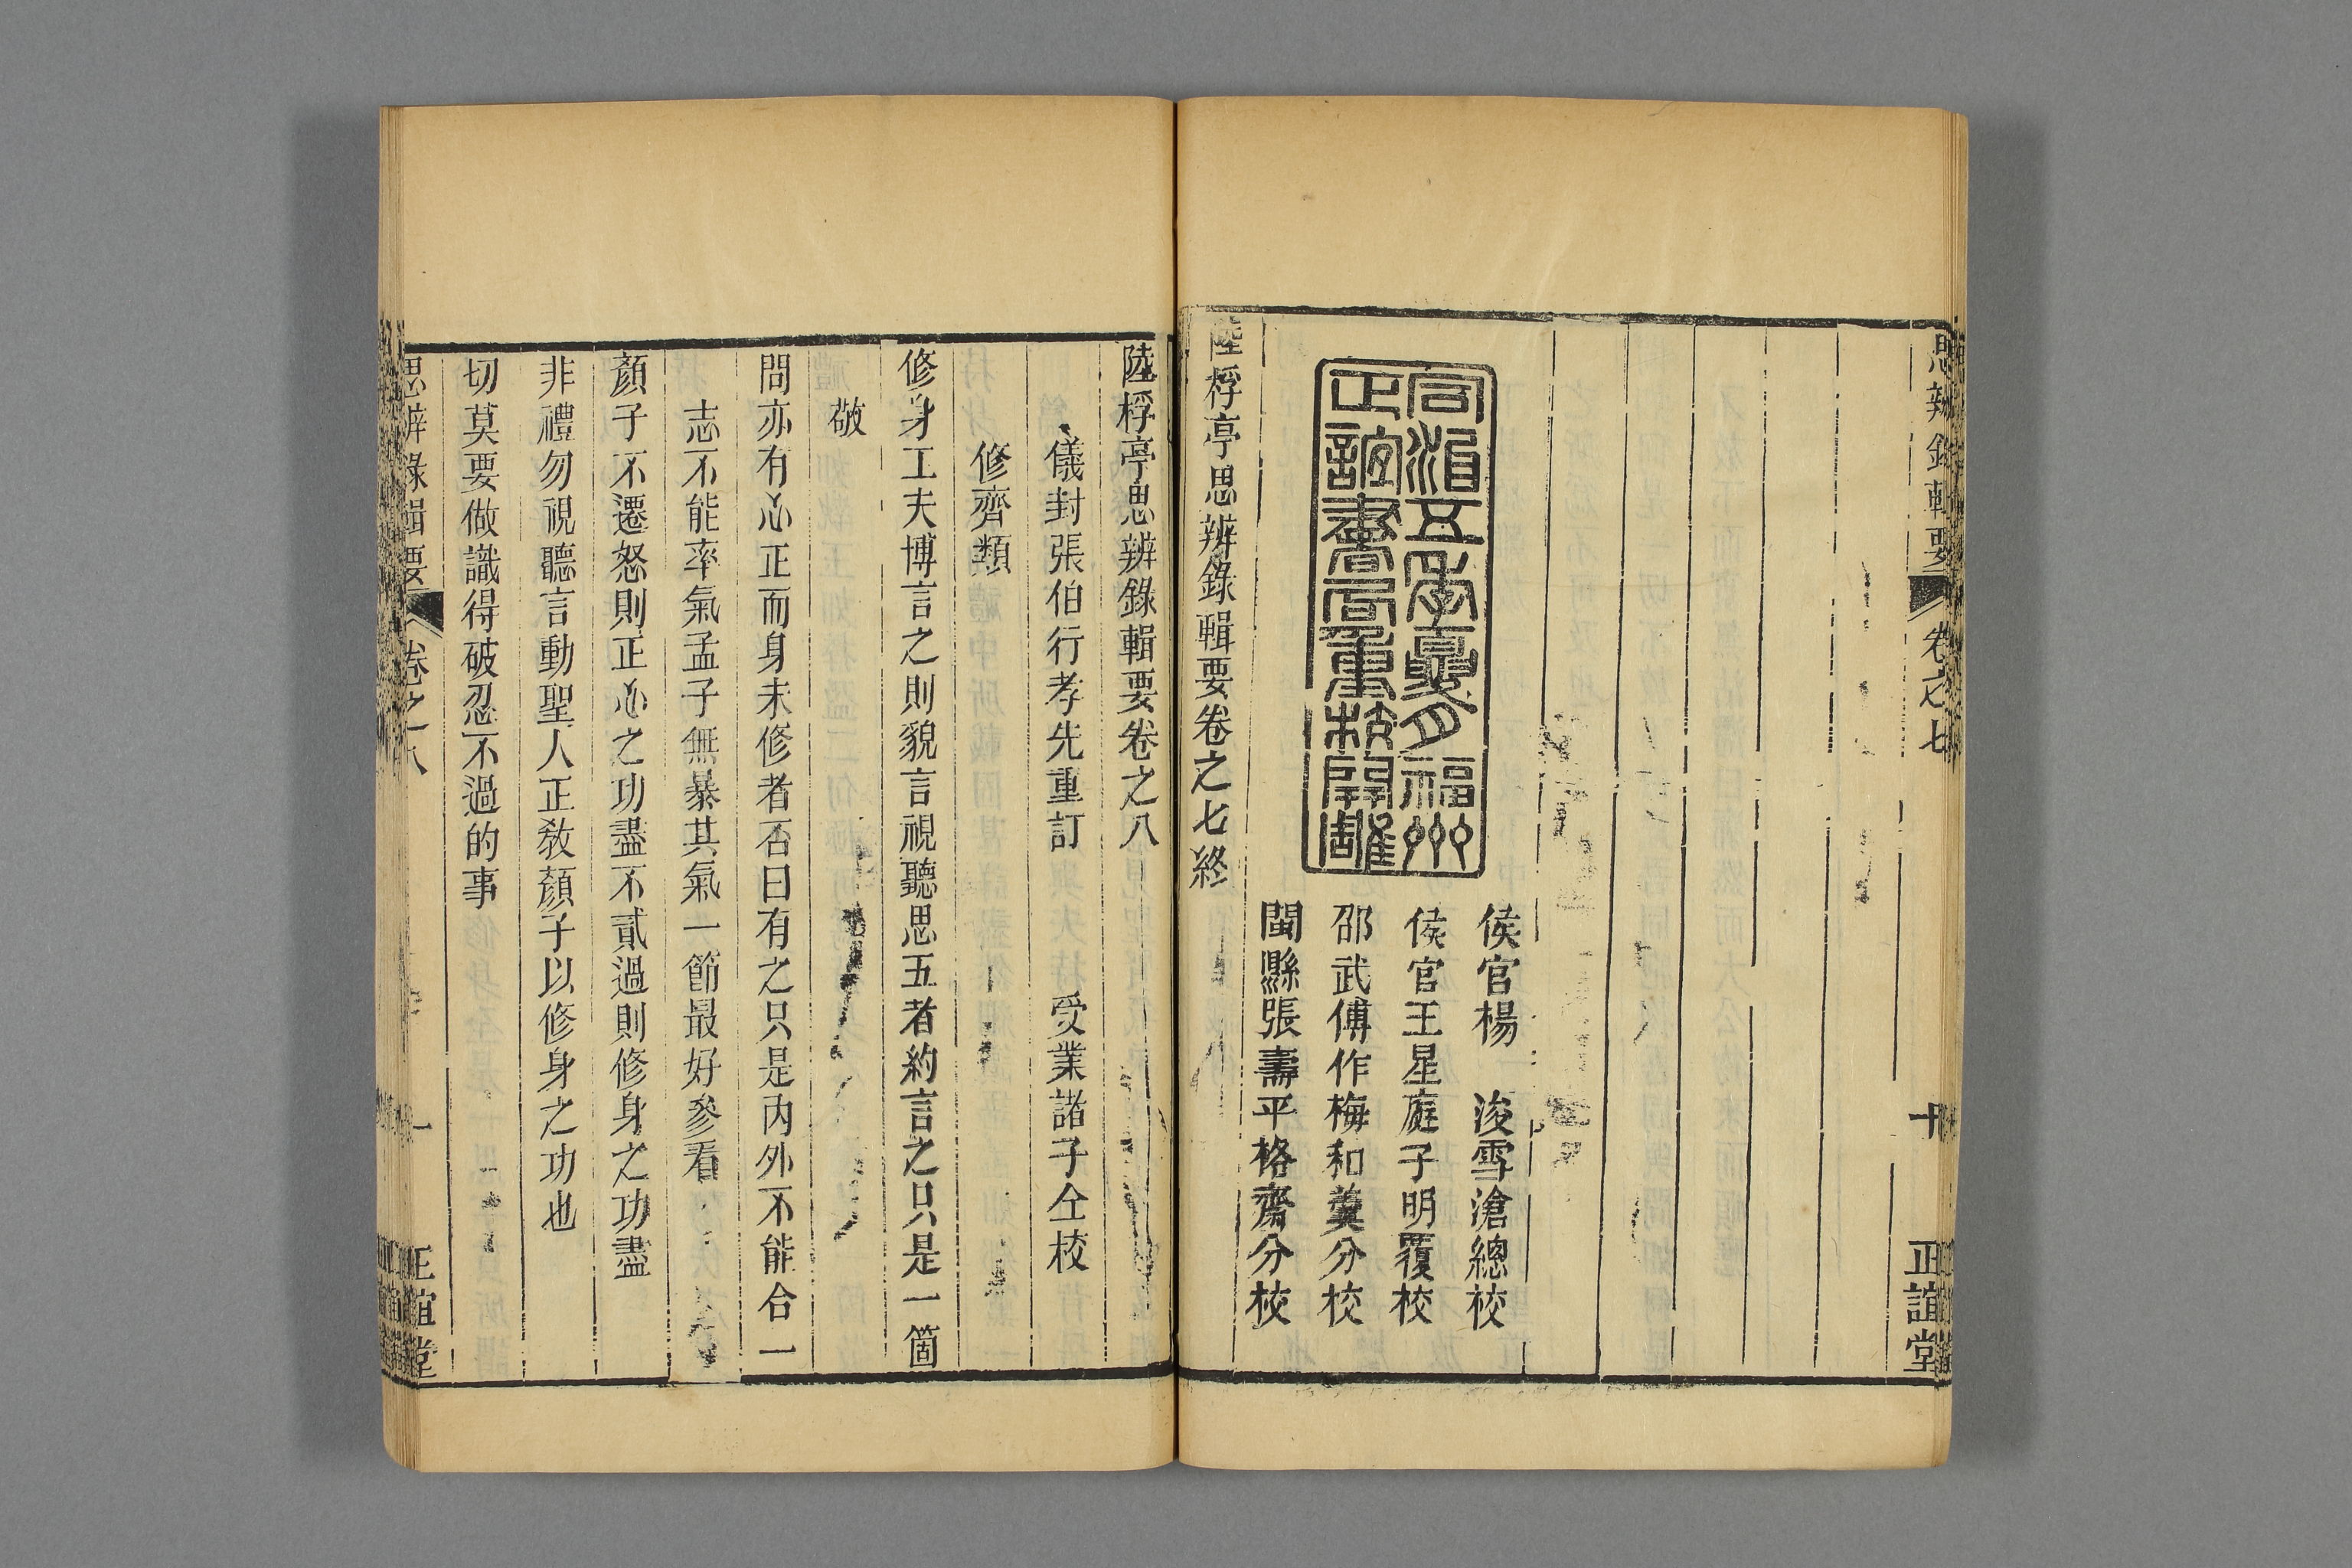 思辨錄輯要
卷之七
十
正誼堂
同治五年夏月福州
正誼書局重校開雕
侯官楊　浚雪滄總校
侯官王星庭子明覆校
邵武傅作梅和羹分校
閩縣張壽平格齋分校
陸桴亭思辨錄輯要卷之七終
陸桴亭思辨錄輯要卷之八
儀封張伯行孝先重訂　受業諸子仝校
修齊類
修身工夫博言之則貌言視聽思五者約言之只是一箇
敬
問亦有心正而身未修者否曰有之只是內外不能合一
志不能率氣孟子無暴其氣一節最好參看
顏子不遷怒則正心之功盡不貳過則修身之功盡
非禮勿視聽言動聖人正教顏子以修身之功也
切莫要做識得破忍不過的事
思辨錄輯要
卷之八
一
正誼堂